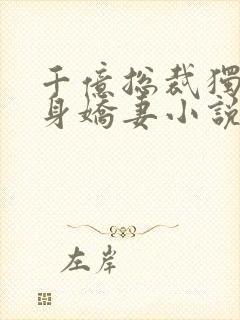 千億總裁獨
身嬌妻小説
左岸